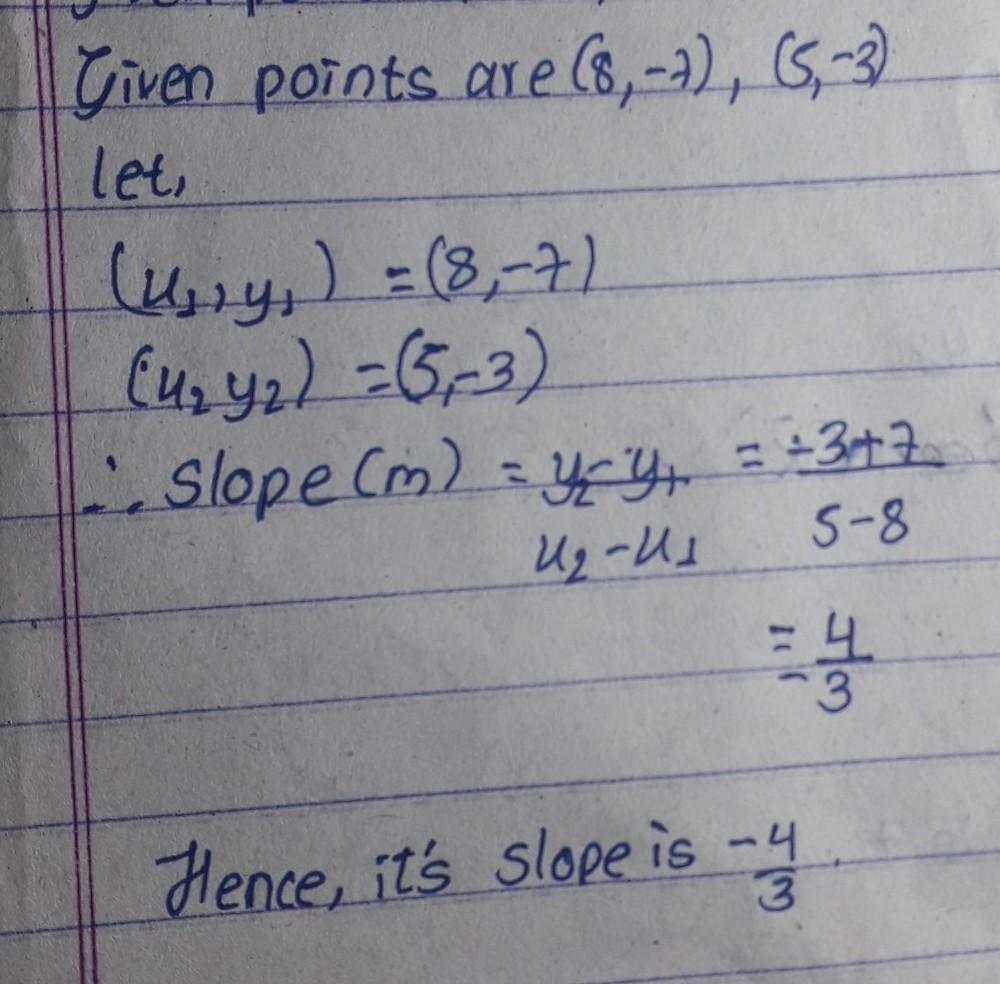 Given points are (8,-7), (5,-3)
let,
(x₁, y₁) = (8,-7)
(x₂ y₂) = (5,-3)
∴ Slope (m) = y₂-y₁ / x₂-x₁ = -3+7 / 5-8
= 4 / -3
Hence, it's slope is -4 / 3.